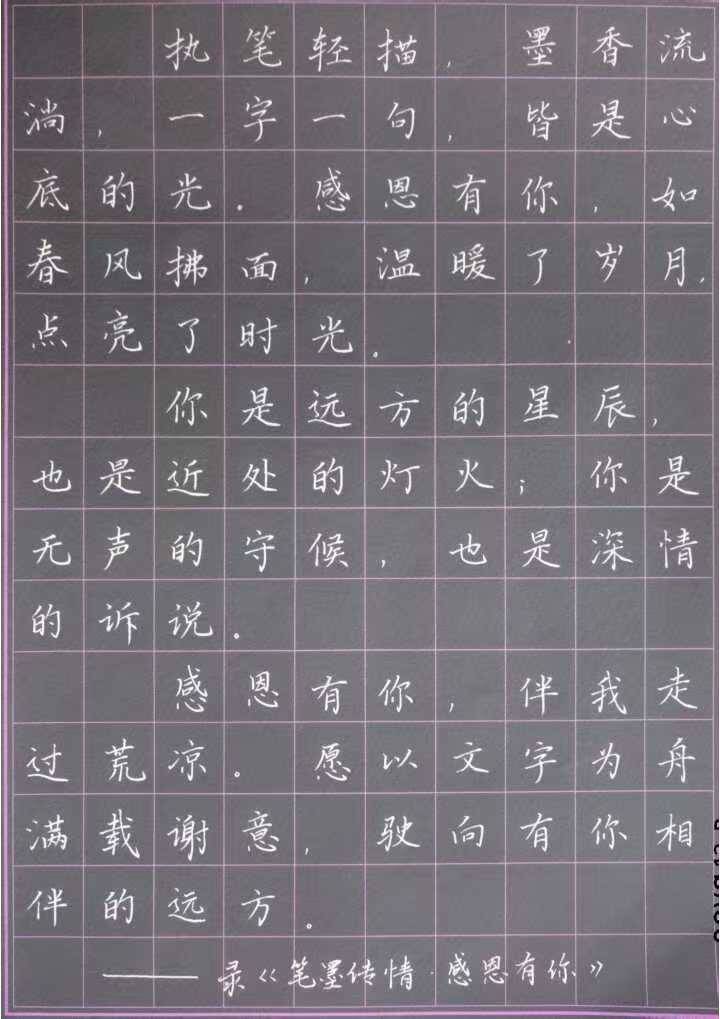 执笔轻描，墨香流
淌，一字一句，皆是心
底的光。感恩有你，如
春风拂面，温暖了岁月，
点亮了时光。
你是远方的星辰，
也是近处的灯火；你是
无声的守候，也是深情
的诉说。
感恩有你，伴我走
过荒凉。愿以文字为舟
满载谢意，驶向有你相
伴的远方。
——录《笔墨传情·感恩有你》